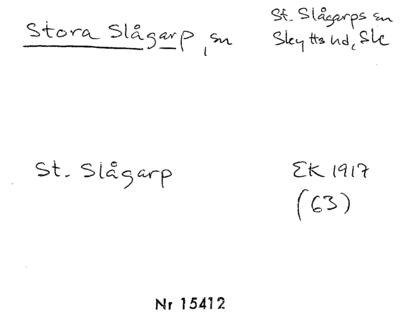 Stora Slågarp, sn
St. Slågarps sn
Skytts hd, Sk
St. Slågarp
EK 1917
(63)
Nr 15412